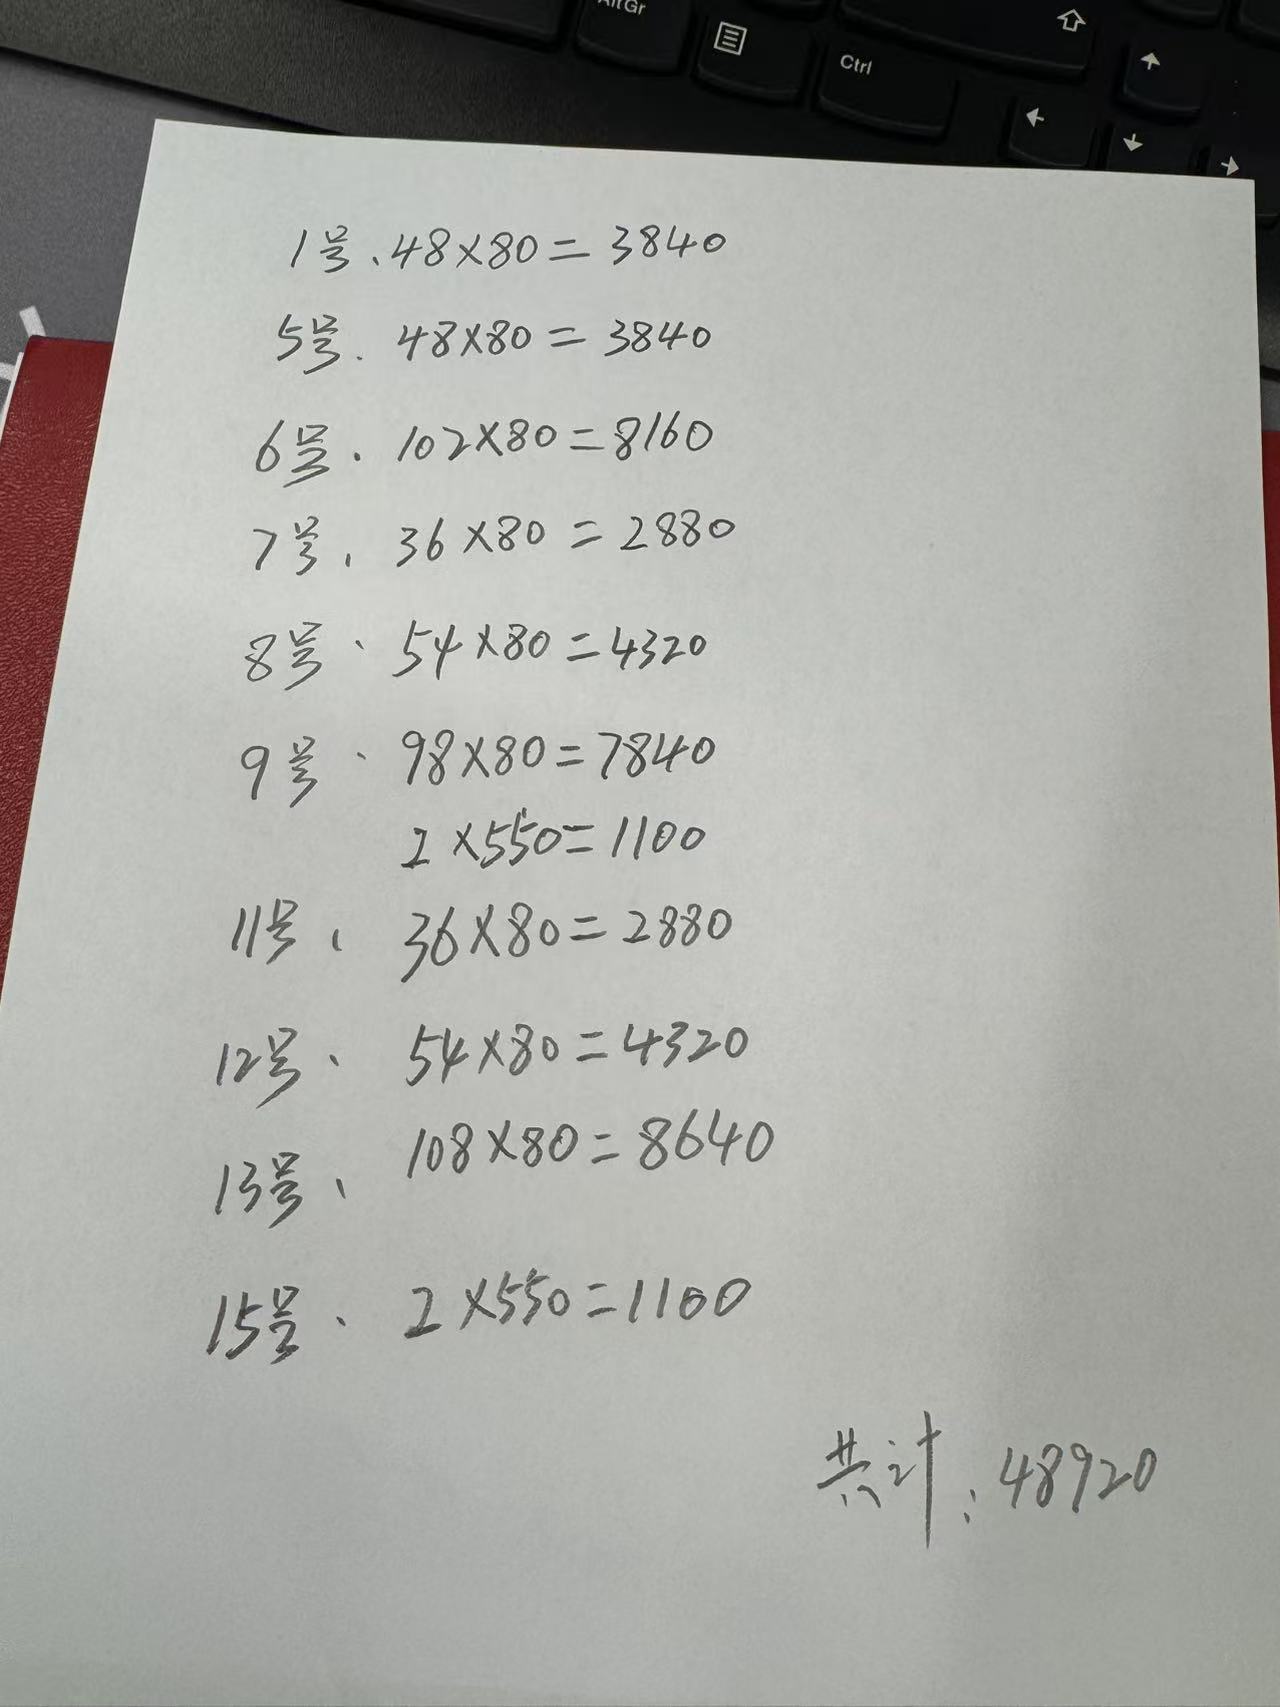 AltGr
Ctrl
1号、48×80=3840
5号. 48×80=3840
6号. 102×80=8160
7号、36×80=2880
8号、54×80=4320
9号、98×80=7840
2×550=1100
11号、36×80=2880
12号、54×80=4320
13号、108×80=8640
15号、2×550=1100
共计:48920